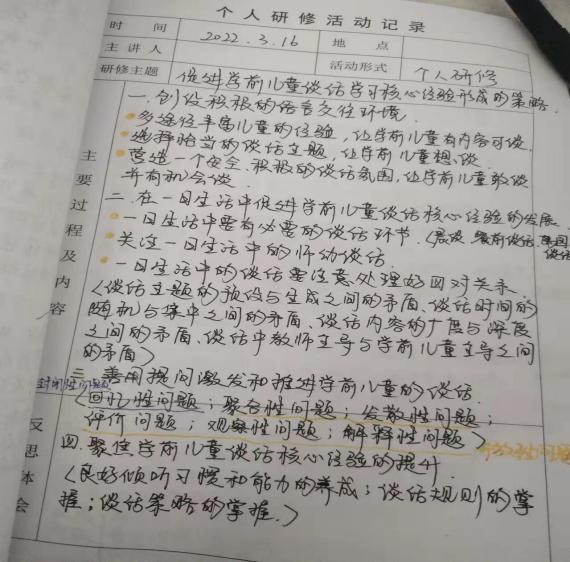 个人研修活动记录
时间 2022.3.16 地点
主讲人 活动形式 个人研修
研修主题 促进学前儿童谈话学习核心经验形成的策略.
主要过程及内容
一.创设积极的语言交往环境.
·多途径丰富儿童的经验,让学前儿童有内容可谈.
·选择恰当的谈话主题,让学前儿童想谈.
·营造一个安全、积极的谈话氛围,让学前儿童敢谈
并有机会谈.
二.在一日生活中促进学前儿童谈话核心经验的发展.
·一日生活中要有必要的谈话环节.(晨谈、餐前谈话、离园谈话
·关注一日生活中的师幼谈话.
·一日生活中的谈话要注意处理好四对关系.
(谈话主题的预设与生成之间的矛盾、谈话时间的
随机与集中之间的矛盾、谈话内容的广度与深度
之间的矛盾、谈话中教师主导与学前儿童主导之间
的矛盾)
三.善用提问激发和推进学前儿童的谈话.
封闭性问题
(回忆性问题;聚合性问题;发散性问题;
评价问题;观察性问题;解释性问题) 开放性问题
反思体会
四.聚焦学前儿童谈话核心经验的提升.
(良好倾听习惯和能力的养成;谈话规则的掌
握;谈话策略的掌握.)